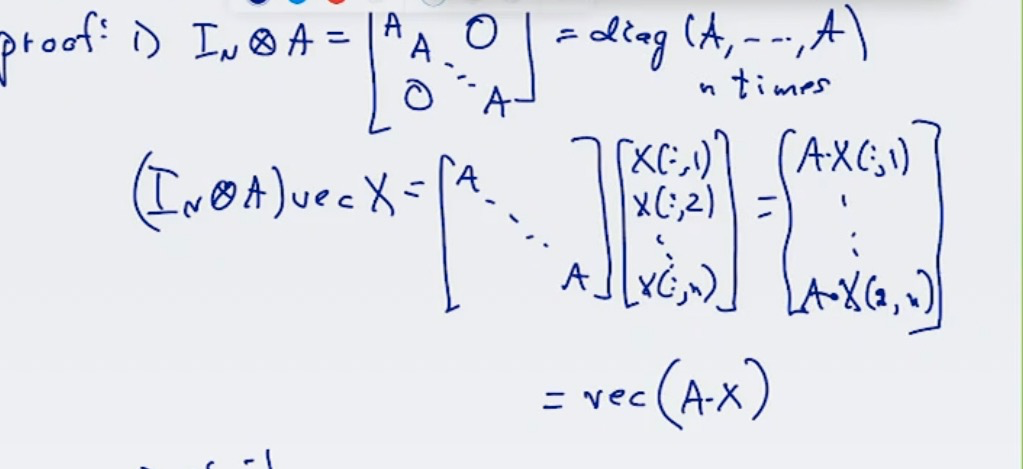 proof: i) I_N ⊗ A = [A A ⋱ A, 0, 0] = diag (A, ---, A)
n times
(I_N ⊗ A) vec X = [A ⋱ A] [X(:,1) X(:,2) ⋮ X(:,n)] = [A·X(:,1) ⋮ A·X(2,n)]
= vec (A·X)